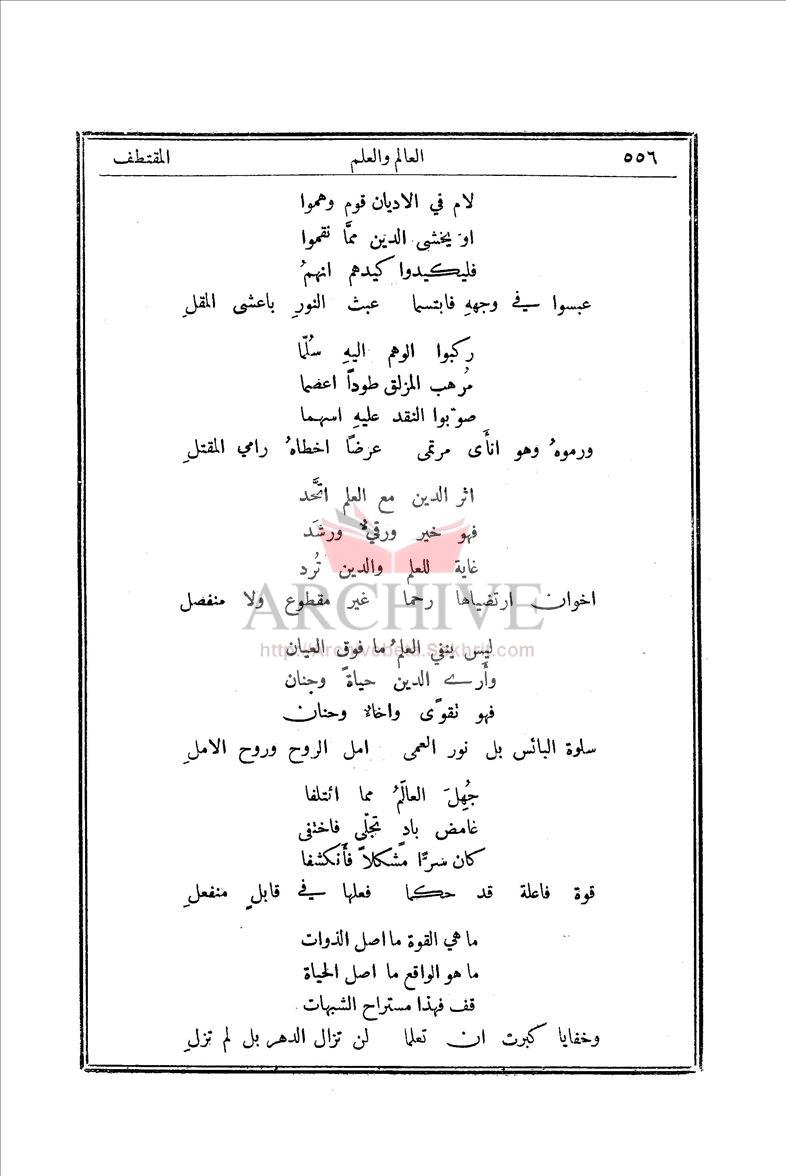 ٥٥٦ العالم والعلم المقتطف
لام في الاديان قوم وهموا
او يخشى الدين ممَّا نقموا
فليكيدوا كيدهم انهمُ
عبسوا في وجههِ فابتسما عبث النورِ باعشى المقلِ
ركبوا الوهم اليهِ سُلّما
مُرهب المزلق طوداً اعصما
صوّبوا النقد عليهِ اسهما
ورموهُ وهو انأَى مرتمى عرضاً اخطاهُ رامي المقتلِ
اثر الدين مع العلم اتَّحد
فهو خير ورقيٌّ ورشَد
غاية للعلم والدين تُرد
اخوان ارتضياها رحما غير مقطوع ولا منفصل
ARCHIVE
http://Archivebeta.Sakhrit.com
ليس ينفي العلمُ ما فوق العيان
وأَرى الدين حياةً وجنان
فهو تقوًى واخاءٌ وحنان
سلوة البائس بل نور العمى امل الروح وروح الاملِ
جُهِلَ العالَمُ مما ائتلفا
غامض بادٍ تجلّى فاختفى
كان سرًّا مشكلاً فأنكشفا
قوة فاعلة قد حكما فعلها في قابلٍ منفعلِ
ما هي القوة ما اصل الذوات
ما هو الواقع ما اصل الحياة
قف فهذا مستراح الشبهات
وخفايا كبرت ان تعلما لن تزال الدهر بل لم تزلِ